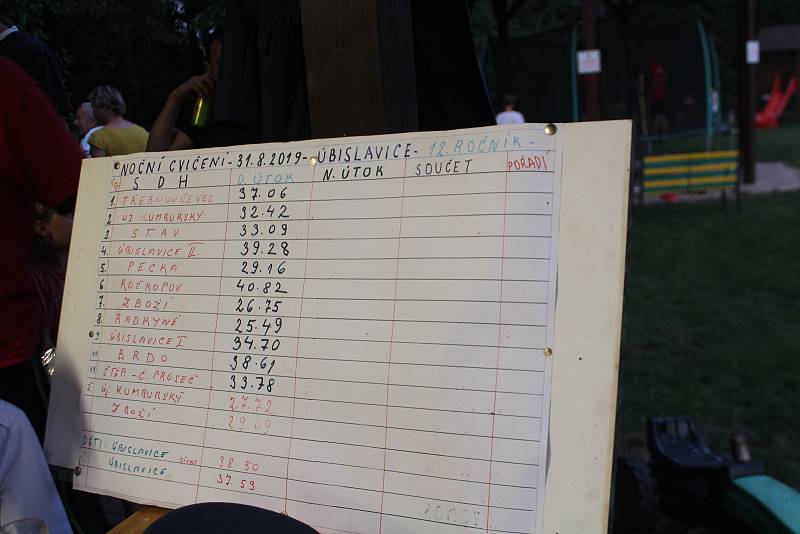 NOČNÍ CVIČENÍ - 31.8.2019 - ÚBISLAVICE - 12. ROČNÍK -
S D H D. ÚTOK N. ÚTOK SOUČET POŘADÍ
1. TŘEBNOUŠEVES 37.06
2. ÚJ KUMBURSKÝ 32.42
3. STAV 33.09
4. ÚBISLAVICE II. 39.28
5. PECKA 29.16
6. ROŠKOPOV 40.82
7. ZBOŽÍ 26.75
8. RADKYNĚ 25.49
9. ÚBISLAVICE I 34.70
10. BRDO 38.61
11. C. PROSEČ 33.78
ÚJ KUMBURSKÝ 27.72
ZBOŽÍ 29.09
DĚTI: ÚBISLAVICE 38.50
ÚBISLAVICE 37.59